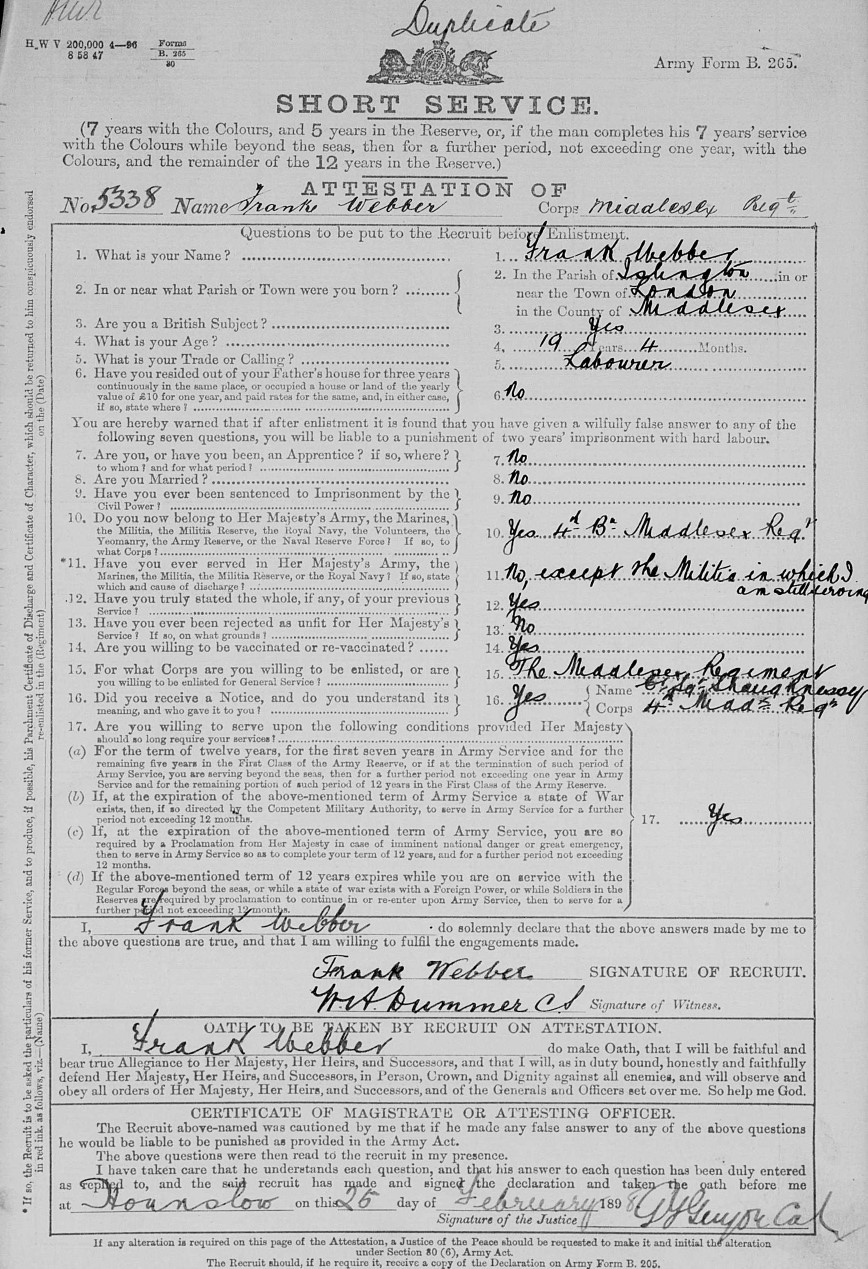 Duplicate
H.W V 200,000 4—96 Forms
8 58 47 B. 265
80
Army Form B. 265.
SHORT SERVICE.
(7 years with the Colours, and 5 years in the Reserve, or, if the man completes his 7 years' service
with the Colours while beyond the seas, then for a further period, not exceeding one year, with the
Colours, and the remainder of the 12 years in the Reserve.)
ATTESTATION OF
No. 5338 Name Frank Webber Corps Middlesex Regt
Questions to be put to the Recruit before Enlistment.
1. What is your Name? 1. Frank Webber
2. In or near what Parish or Town were you born? 2. In the Parish of Islington in or
near the Town of London
in the County of Middlesex
3. Are you a British Subject? 3. Yes
4. What is your Age? 4. 19 Years 4 Months.
5. What is your Trade or Calling? 5. Labourer
6. Have you resided out of your Father's house for three years
continuously in the same place, or occupied a house or land of the yearly
value of £10 for one year, and paid rates for the same, and, in either case,
if so, state where? 6. No
You are hereby warned that if after enlistment it is found that you have given a wilfully false answer to any of the
following seven questions, you will be liable to a punishment of two years' imprisonment with hard labour.
7. Are you, or have you been, an Apprentice? if so, where?
to whom? and for what period? 7. No
8. Are you Married? 8. No
9. Have you ever been sentenced to Imprisonment by the
Civil Power? 9. No
10. Do you now belong to Her Majesty's Army, the Marines,
the Militia, the Militia Reserve, the Royal Navy, the Volunteers, the
Yeomanry, the Army Reserve, or the Naval Reserve Force? If so, to
what Corps? 10. Yes 4th Bn Middlesex Regt
*11. Have you ever served in Her Majesty's Army, the
Marines, the Militia, the Militia Reserve, or the Royal Navy? If so, state
which and cause of discharge? 11. No, except the Militia in which I
am still serving
12. Have you truly stated the whole, if any, of your previous
Service? 12. Yes
13. Have you ever been rejected as unfit for Her Majesty's
Service? If so, on what grounds? 13. No
14. Are you willing to be vaccinated or re-vaccinated? 14. Yes
15. For what Corps are you willing to be enlisted, or are
you willing to be enlisted for General Service? 15. The Middlesex Regiment
16. Did you receive a Notice, and do you understand its
meaning, and who gave it to you? 16. Yes Name Shaughnessy
Corps 4th Midd'x Regt
17. Are you willing to serve upon the following conditions provided Her Majesty
should so long require your services?
(a) For the term of twelve years, for the first seven years in Army Service and for the
remaining five years in the First Class of the Army Reserve, or if at the termination of such period of
Army Service, you are serving beyond the seas, then for a further period not exceeding one year in Army
Service and for the remaining portion of such period of 12 years in the First Class of the Army Reserve.
(b) If, at the expiration of the above-mentioned term of Army Service a state of War
exists, then, if so directed by the Competent Military Authority, to serve in Army Service for a further
period not exceeding 12 months.
17. Yes
(c) If, at the expiration of the above-mentioned term of Army Service, you are so
required by a Proclamation from Her Majesty in case of imminent national danger or great emergency,
then to serve in Army Service so as to complete your term of 12 years, and for a further period not exceeding
12 months.
(d) If the above-mentioned term of 12 years expires while you are on service with the
Regular Forces beyond the seas, or while a state of war exists with a Foreign Power, or while Soldiers in the
Reserves are required by proclamation to continue in or re-enter upon Army Service, then to serve for a
further period not exceeding 12 months.
I, Frank Webber do solemnly declare that the above answers made by me to
the above questions are true, and that I am willing to fulfil the engagements made.
Frank Webber SIGNATURE OF RECRUIT.
W.A. Dummer CS Signature of Witness.
OATH TO BE TAKEN BY RECRUIT ON ATTESTATION.
I, Frank Webber do make Oath, that I will be faithful and
bear true Allegiance to Her Majesty, Her Heirs, and Successors, and that I will, as in duty bound, honestly and faithfully
defend Her Majesty, Her Heirs, and Successors, in Person, Crown, and Dignity against all enemies, and will observe and
obey all orders of Her Majesty, Her Heirs, and Successors, and of the Generals and Officers set over me. So help me God.
CERTIFICATE OF MAGISTRATE OR ATTESTING OFFICER.
The Recruit above-named was cautioned by me that if he made any false answer to any of the above questions
he would be liable to be punished as provided in the Army Act.
The above questions were then read to the recruit in my presence.
I have taken care that he understands each question, and that his answer to each question has been duly entered
as replied to, and the said recruit has made and signed the declaration and taken the oath before me
at Hounslow on this 25 day of February 1898
Signature of the Justice
If any alteration is required on this page of the Attestation, a Justice of the Peace should be requested to make it and initial the alteration
under Section 80 (6), Army Act.
The Recruit should, if he require it, receive a copy of the Declaration on Army Form B. 205.
* If so, the Recruit is to be asked the particulars of his former Service, and to produce, if possible, his Parchment Certificate of Discharge and Certificate of Character, which should be returned to him conspicuously endorsed
in red ink, as follows, viz.—(Name) re-enlisted in the (Regiment) on the (Date)